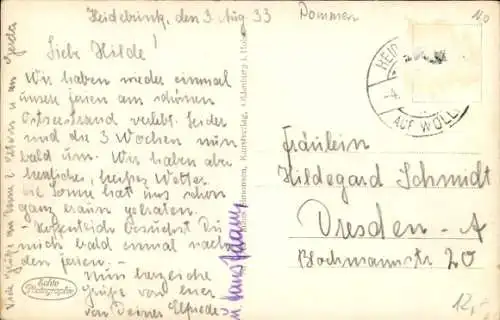 Heidebrink, den 3. Aug. 33
Pommern
Liebe Hilde!
Wir haben wieder einmal
unsere Ferien am schönen
Ostseestrand verlebt. Leider
sind die 3 Wochen nun
bald um. Wir haben aber
herrliches, heißes Wetter
die Sonne hat uns schon
ganz braun gebraten.
- Hoffentlich besuchst Du
mich bald einmal nach
den Ferien. -
Nun herzliche
Grüße von euer
von Deiner Elfriede
u. Hans Adam
Viele Grüße an Deine l. Eltern u. an Gerda
Echte
Photographie
Kunstverlag, Oldenburg i. Hols
HEID
AUF WOLL
Fräulein
Hildegard Schmidt
Dresden - A
Blochmannstr 20
12,-
No